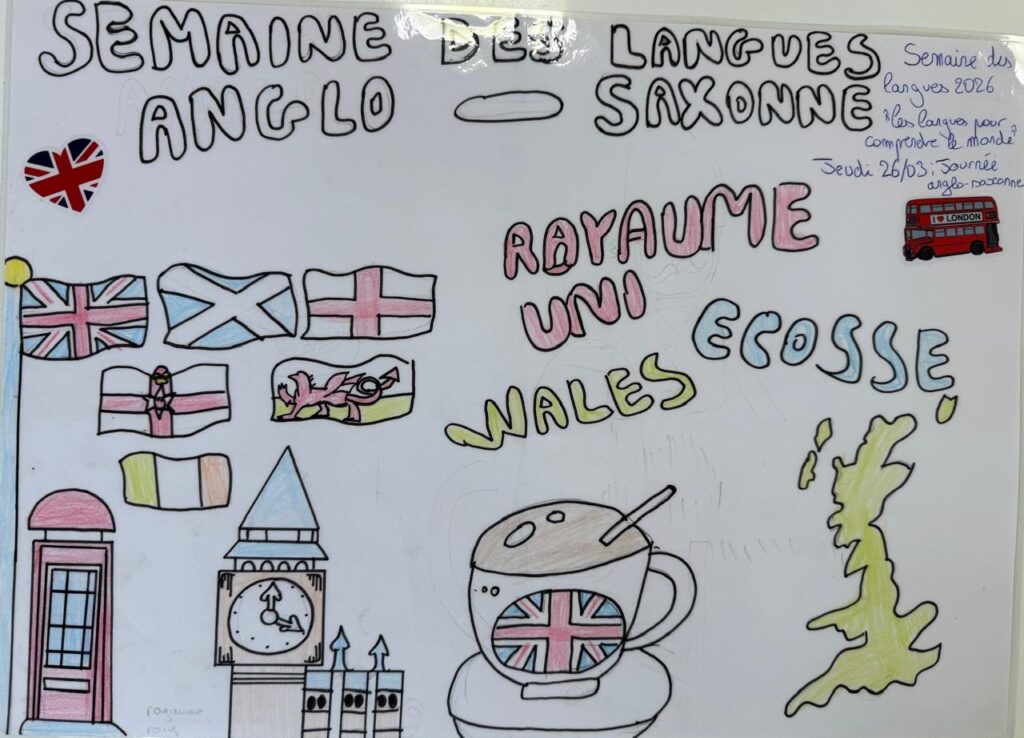 SEMAINE DES LANGUES
ANGLO - SAXONNE
Semaine des
langues 2026
"Les langues pour
comprendre le monde"
Jeudi 26/03 : Journée
anglo-saxonne
I ❤ LONDON
RAYAUME
UNI
ECOSSE
WALES
royaume